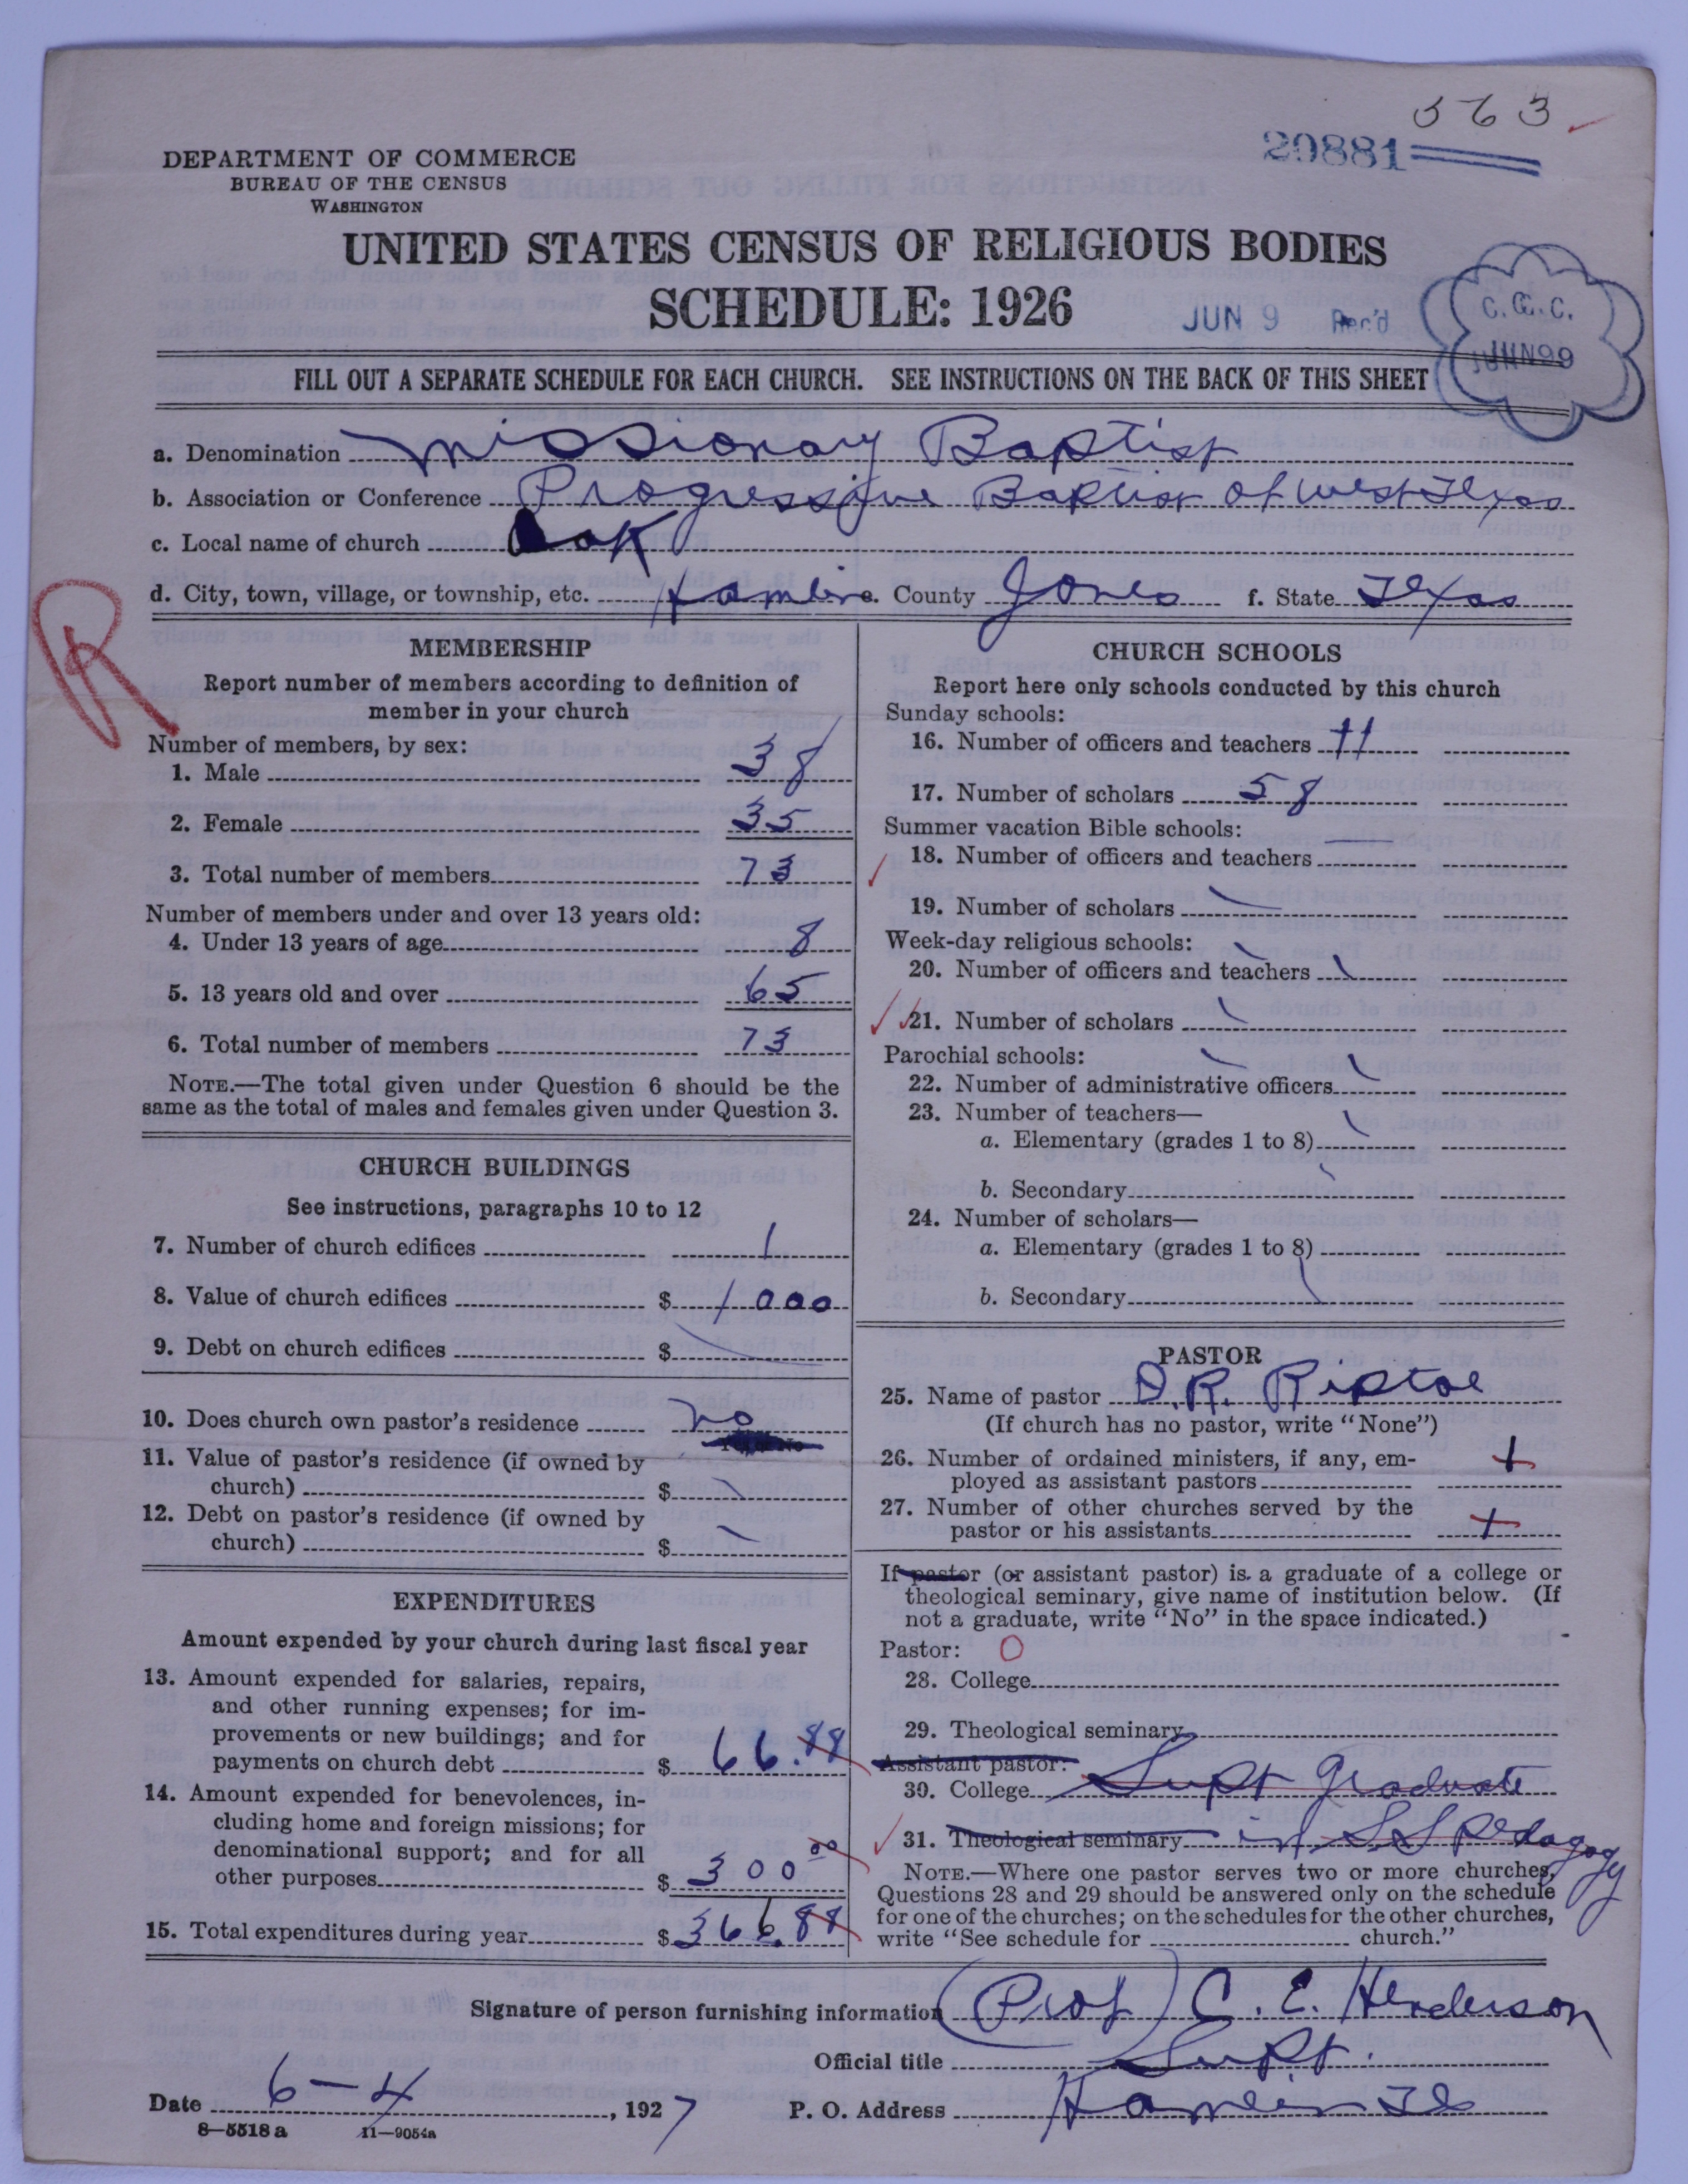 563
29881
DEPARTMENT OF COMMERCE
BUREAU OF THE CENSUS
WASHINGTON
UNITED STATES CENSUS OF RELIGIOUS BODIES
SCHEDULE: 1926
JUN 9 Rec'd
C.G.C.
JUN 9
FILL OUT A SEPARATE SCHEDULE FOR EACH CHURCH. SEE INSTRUCTIONS ON THE BACK OF THIS SHEET
a. Denomination Missionary Baptist
b. Association or Conference Progressive Baptist of West Texas
c. Local name of church Oak
d. City, town, village, or township, etc. Hamlin e. County Jones f. State Texas
R
MEMBERSHIP
Report number of members according to definition of
member in your church
Number of members, by sex:
1. Male 38
2. Female 35
3. Total number of members 73
Number of members under and over 13 years old:
4. Under 13 years of age 8
5. 13 years old and over 65
6. Total number of members 73
NOTE.—The total given under Question 6 should be the
same as the total of males and females given under Question 3.
CHURCH BUILDINGS
See instructions, paragraphs 10 to 12
7. Number of church edifices 1
8. Value of church edifices $ 1000
9. Debt on church edifices $
10. Does church own pastor's residence no
11. Value of pastor's residence (if owned by
church) $
12. Debt on pastor's residence (if owned by
church) $
EXPENDITURES
Amount expended by your church during last fiscal year
13. Amount expended for salaries, repairs,
and other running expenses; for im-
provements or new buildings; and for
payments on church debt $ 66.88
14. Amount expended for benevolences, in-
cluding home and foreign missions; for
denominational support; and for all
other purposes $ 300 00
15. Total expenditures during year $ 366.88
CHURCH SCHOOLS
Report here only schools conducted by this church
Sunday schools:
16. Number of officers and teachers 11
17. Number of scholars 58
Summer vacation Bible schools:
18. Number of officers and teachers
19. Number of scholars
Week-day religious schools:
20. Number of officers and teachers
21. Number of scholars
Parochial schools:
22. Number of administrative officers
23. Number of teachers—
a. Elementary (grades 1 to 8)
b. Secondary
24. Number of scholars—
a. Elementary (grades 1 to 8)
b. Secondary
PASTOR
25. Name of pastor D.R. Riptoe
(If church has no pastor, write "None")
26. Number of ordained ministers, if any, em-
ployed as assistant pastors
27. Number of other churches served by the
pastor or his assistants
If pastor (or assistant pastor) is a graduate of a college or
theological seminary, give name of institution below. (If
not a graduate, write "No" in the space indicated.)
Pastor: O
28. College
29. Theological seminary
Assistant pastor:
30. College Supt graduate
31. Theological seminary in S S pedagogy
NOTE.—Where one pastor serves two or more churches,
Questions 28 and 29 should be answered only on the schedule
for one of the churches; on the schedules for the other churches,
write "See schedule for church."
Signature of person furnishing information (Prof) C. E. Henderson
Official title Supt.
Date 6-4, 1927 P. O. Address Hamlin Tex
8—5518a 11—9054a